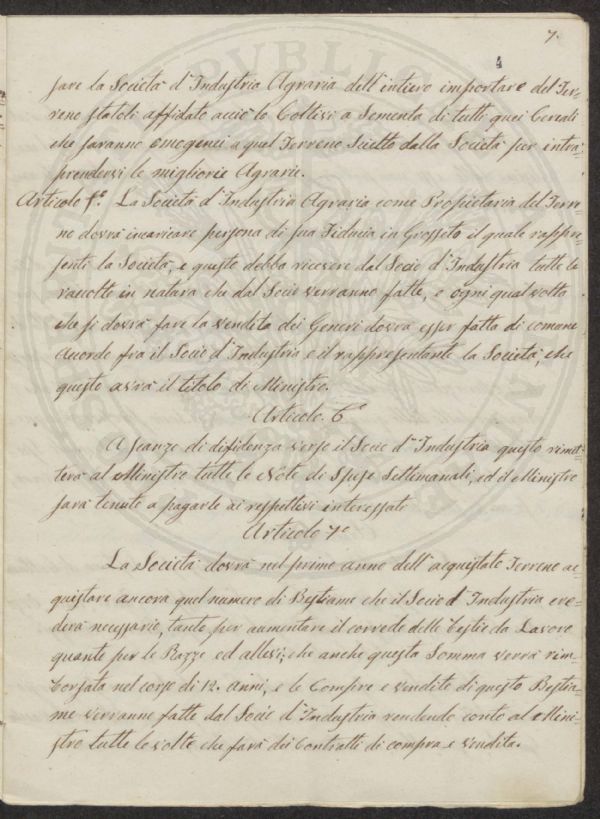 7.
4
sare la Società d'Industria Agraria dell'intiero importare del Ter=
reno statoli affidato acciò lo Coltivi a Sementa di tutti quei Cereali
che saranno omogenei a quel Terreno Scielto dalla Società per intra=
prendervi le migliorie Agrarie.
Articolo 5º. La Società d'Industria Agraria come Proprietaria del Terre=
no dovrà incaricare persona di sua Fiducia in Grosseto il quale rappre=
senti la Società, e questo debba ricevere dal Socio d'Industria tutte le
raccolte in natura che dal Socio verranno fatte, e ogni qual volta
che si dovrà fare la vendita dei Generi dovrà esser fatta di comune
acordo fra il Socio d'Industria e il rappresentante la Società, che
questo avrà il titolo di Ministro.
Articolo. 6º
A scanzo di difidenza verso il Socio d'Industria questo rimet=
terà al Ministro tutte le Note di Spese Settimanali, ed il Ministro
sarà tenuto a pagarle ai respettivi interessati
Articolo 7º
La Società dovrà nel primo anno dell'acquistato Terreno ac=
quistare ancora quel numero di Bestiame che il Socio d'Industria cre=
derà necessario, tanto per aumentare il corredo delle bestie da Lavoro
quanto per le Razze ed allevi, che anche questa Somma verrà rim=
borsata nel corso di 12. anni, e le Compre e vendite di questo Bestia=
me verranno fatte dal Socio d'Industria rendendo conto al Mini=
stro tutte le volte che farà dei Contratti di compra e vendita.
PVBLICO